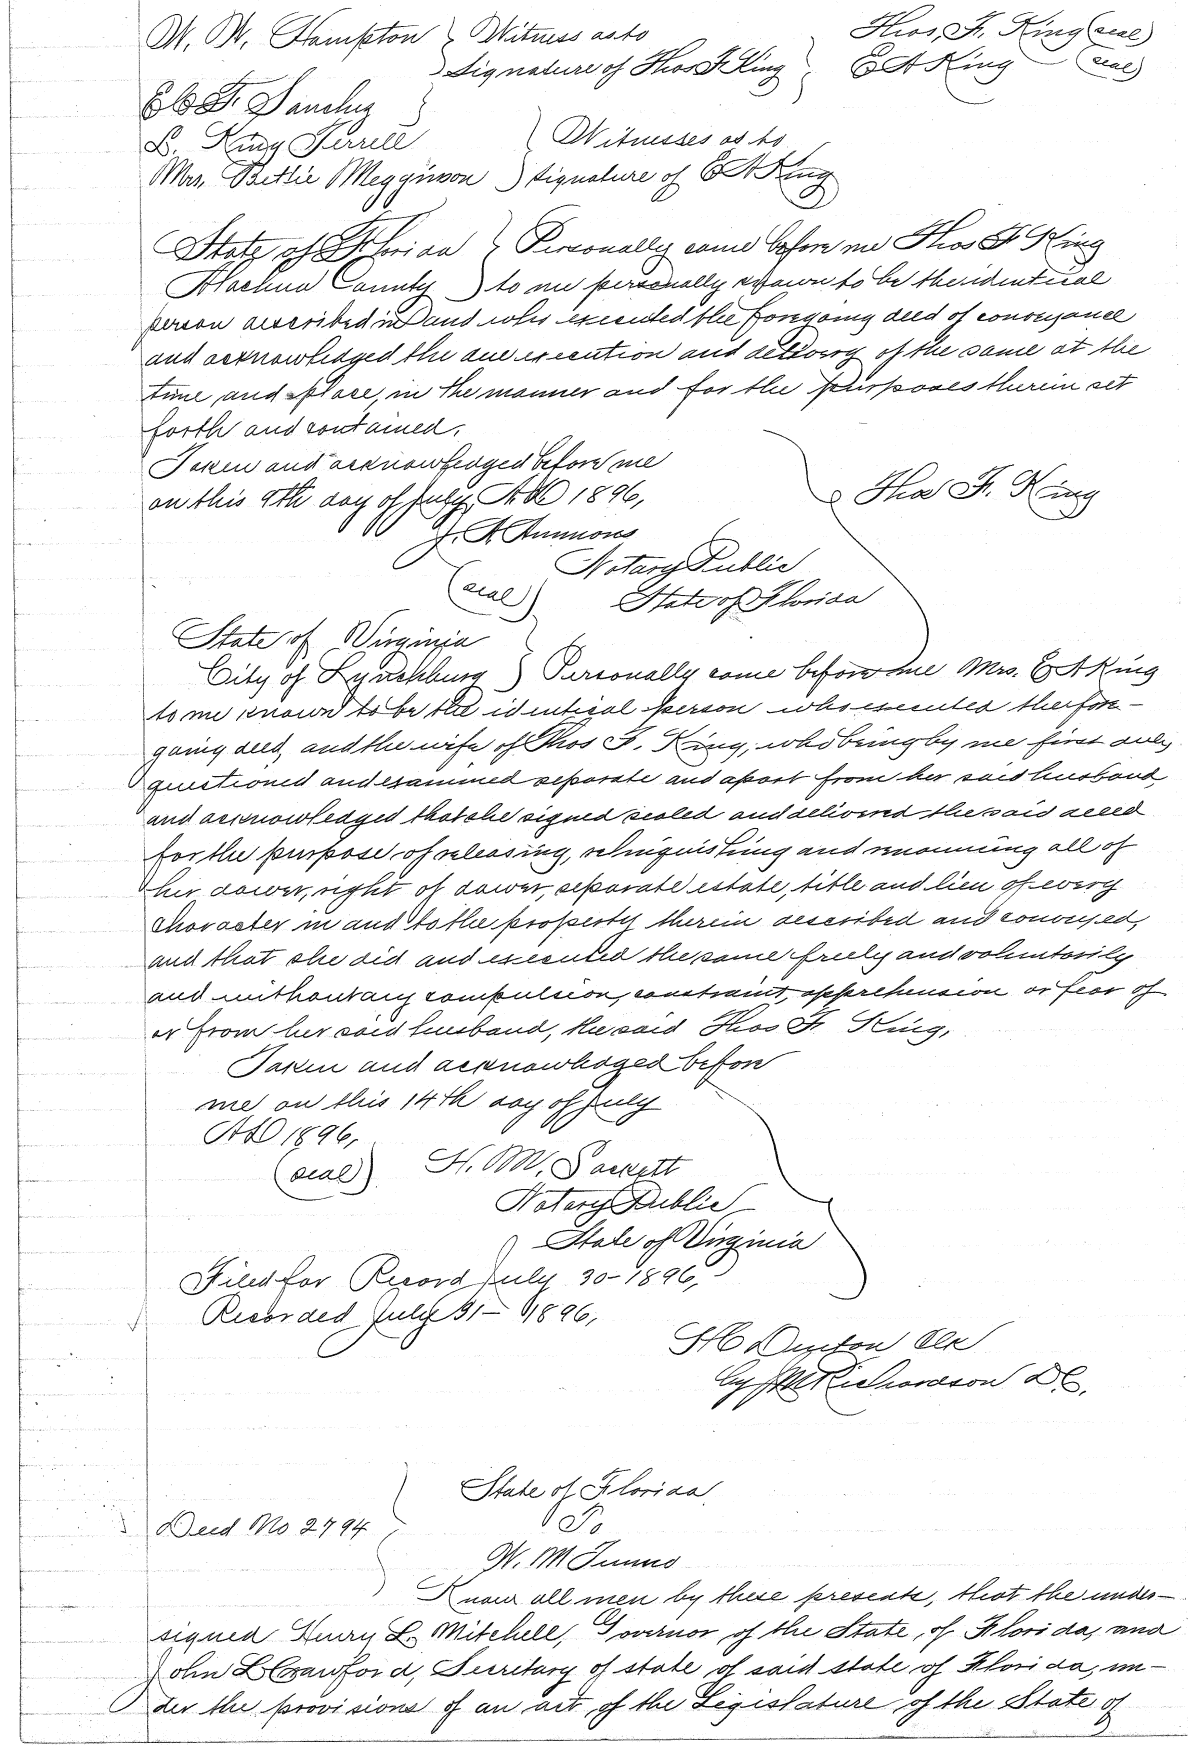 W. W. Hampton } Witness as to Thos. F. King (seal)
Signature of Thos F King E A King (seal)
F. Sanchez
L. King Terrell } Witnesses as to
Mrs. Bettie Megginson } Signature of E A King
State of Florida } Personally came before me Thos F King
Alachua County } to me personally known to be the identical
person described in and who executed the foregoing deed of conveyance
and acknowledged the due execution and delivery of the same at the
time and place, in the manner and for the purposes therein set
forth and contained.
Taken and acknowledged before me
on this 9th day of July, AD 1896, Thos F. King
J. A. Ammons
Notary Public
(seal) State of Florida
State of Virginia }
City of Lynchburg } Personally came before me Mrs. E A King
to me known to be the identical person who executed the fore-
going deed, and the wife of Thos F. King, who being by me first duly
questioned and examined separate and apart from her said husband,
and acknowledged that she signed sealed and delivered the said deed
for the purpose of releasing, relinquishing and renouncing all of
her dower, right of dower, separate estate, title and lien of every
character in and to the property therein described and conveyed,
and that she did and executed the same freely and voluntarily
and without any compulsion, constraint, apprehension or fear of
or from her said husband, the said Thos F. King,
Taken and acknowledged before
me on this 14th day of July
AD 1896,
(seal) H. M. Sackett
Notary Public
State of Virginia
Filed for Record July 30- 1896,
Recorded July 31- 1896,
H C Denton Clk
by Richardson D C,
State of Florida
Deed No 2794 } To
W. M
Know all men by these presents, that the under-
signed Henry L. Mitchell, Governor of the State, of Florida, and
John L Crawford, Secretary of state of said state of Florida, un-
der the provisions of an act of the Legislature of the State of